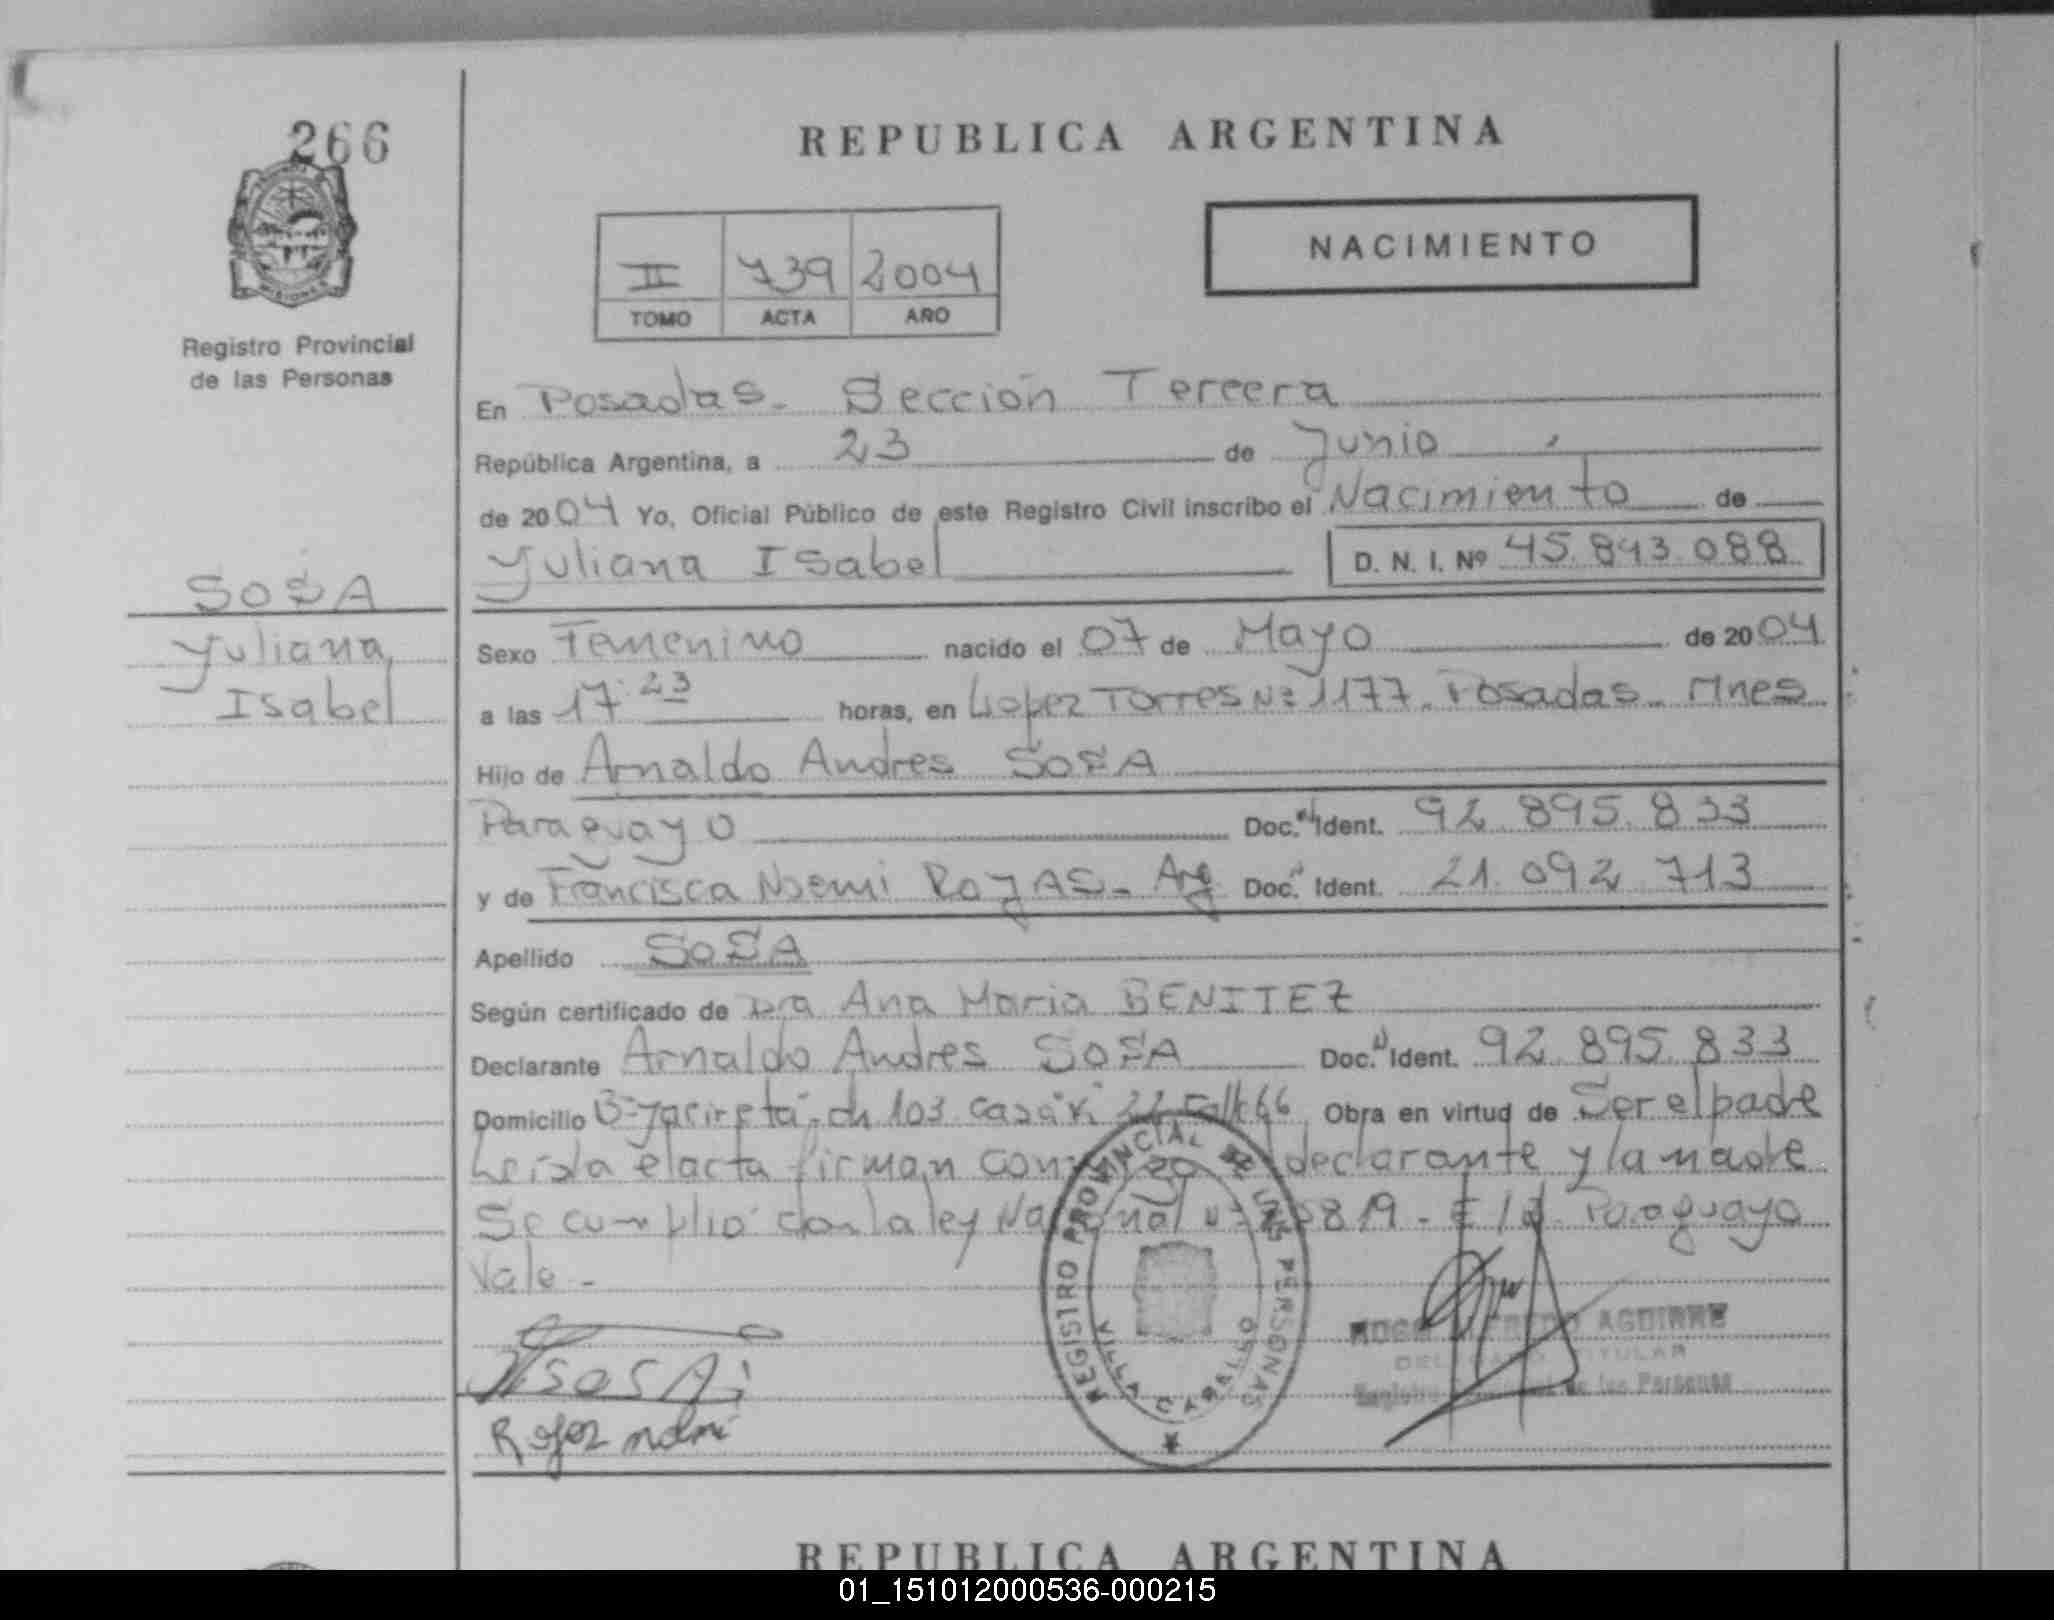 266
MISIONES
Registro Provincial
de las Personas
SOSA
Yuliana
Isabel
REPUBLICA ARGENTINA
NACIMIENTO
II 739 2004
TOMO ACTA AÑO
En Posadas - Sección Tercera
República Argentina, a 23 de Junio
de 2004 Yo, Oficial Público de este Registro Civil inscribo el Nacimiento de
Yuliana Isabel D. N. I. Nº 45.843.088
Sexo Femenino nacido el 07 de Mayo de 2004
a las 17:23 horas, en Lopez Torres Nº 1177. Posadas - Mnes
Hijo de Arnaldo Andres SOSA
Paraguayo Doc. Ident. 92.895.833
y de Francisca Noemi ROJAS - Arg Doc. Ident. 21.092.713
Apellido SOSA
Según certificado de Dra Ana Maria BENITEZ
Declarante Arnaldo Andres SOSA Doc. Ident. 92.895.833
Domicilio Bº Yaciretá - ch 103 casa Obra en virtud de Ser el padre
Leída el acta firman declarante y la madre
Se cumplió con la ley Nacional Paraguayo
Vale -
SOSA
REGISTRO PROVINCIAL DE LAS PERSONAS
VILLA CABELLO
HUGO ALFREDO AGUIRRE
DELEGADO TITULAR
Registro Provincial de las Personas
REPUBLICA ARGENTINA
01_151012000536-000215